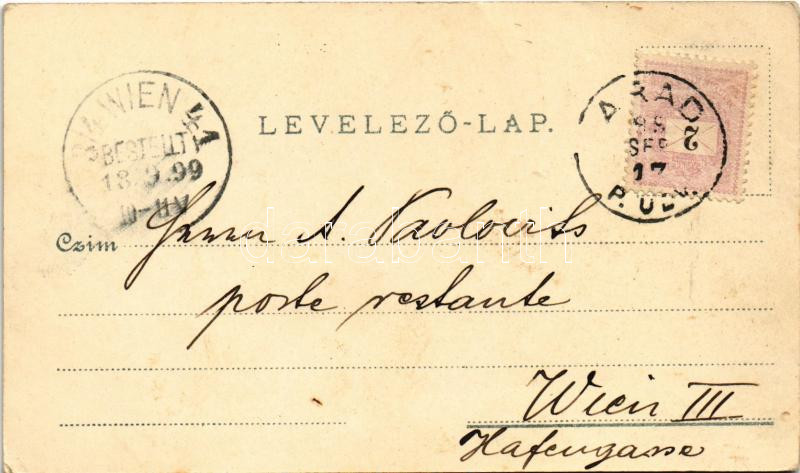 WIEN 4/1
BESTELLT
18.9.99
LEVELEZŐ-LAP.
ARAD
99
SEP
17
P. UDV.
2
Czim
Herrn A. Pavlovits
poste restante
Wien III
Hafengasse
darabanth.com